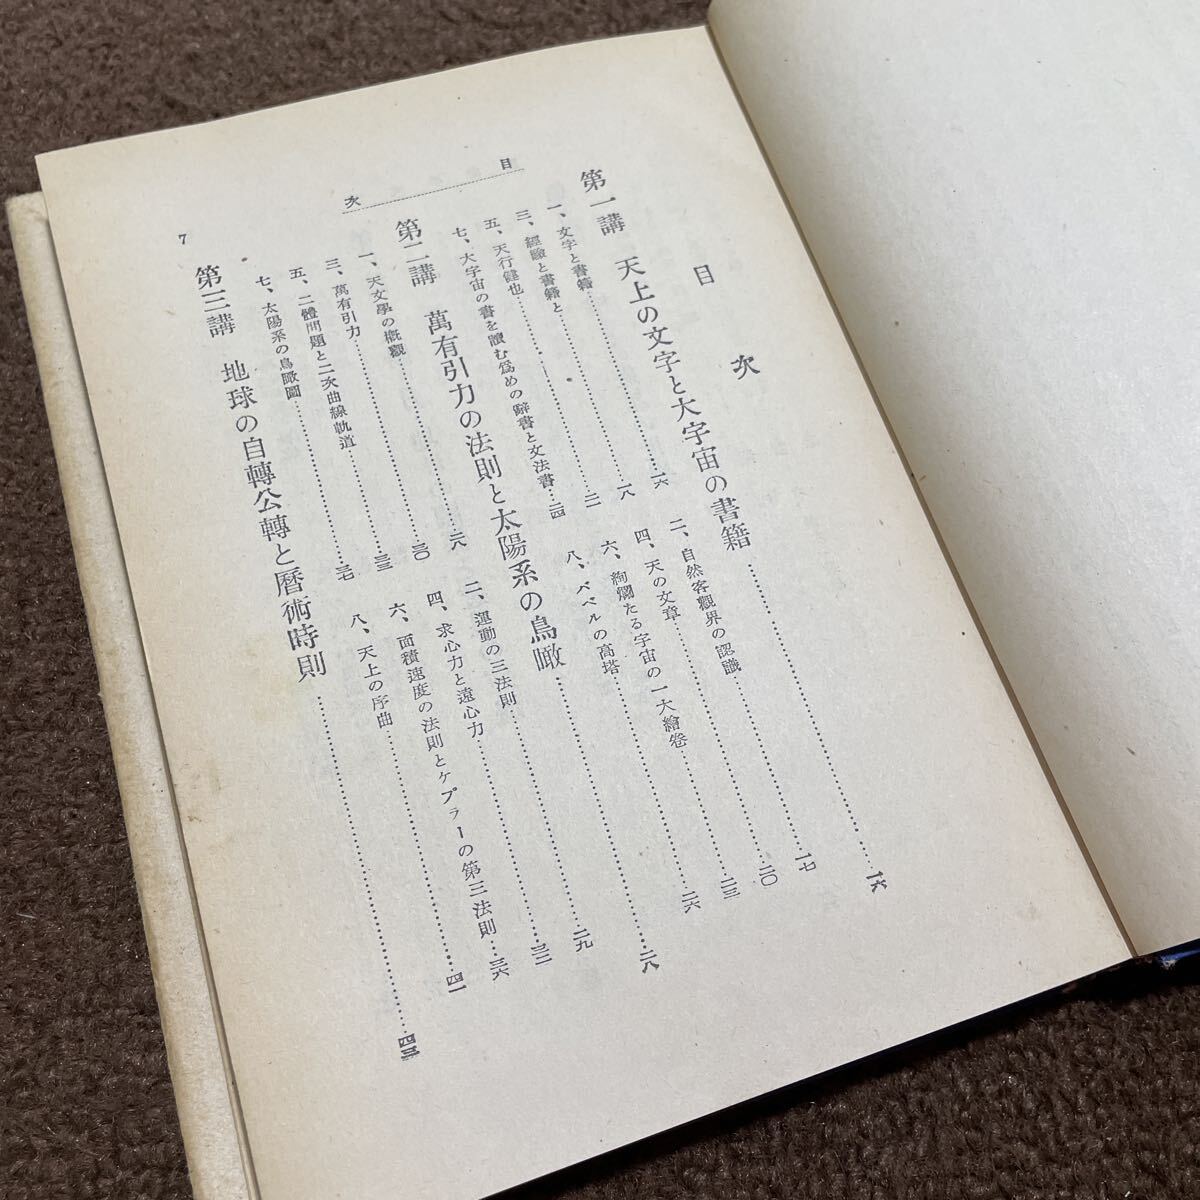 目次
目次
第一講 天上の文字と大宇宙の書籍……一六
一、文字と書籍……一六
二、自然客觀界の認識……一七
三、經驗と書籍と……一八
四、天の文章……二〇
五、天行健也……二一
六、絢爛たる宇宙の一大繪卷……二三
七、大宇宙の書を讀む爲めの辭書と文法書……二四
八、バベルの高塔……二六
第二講 萬有引力の法則と太陽系の鳥瞰……二八
一、天文學の槪觀……二八
二、運動の三法則……二九
三、萬有引力……三〇
四、求心力と遠心力……三二
五、二體問題と二次曲線軌道……三三
六、面積速度の法則とケプラーの第三法則……三六
七、太陽系の鳥瞰圖……三七
八、天上の序曲……四一
第三講 地球の自轉公轉と曆術時則……四三
7